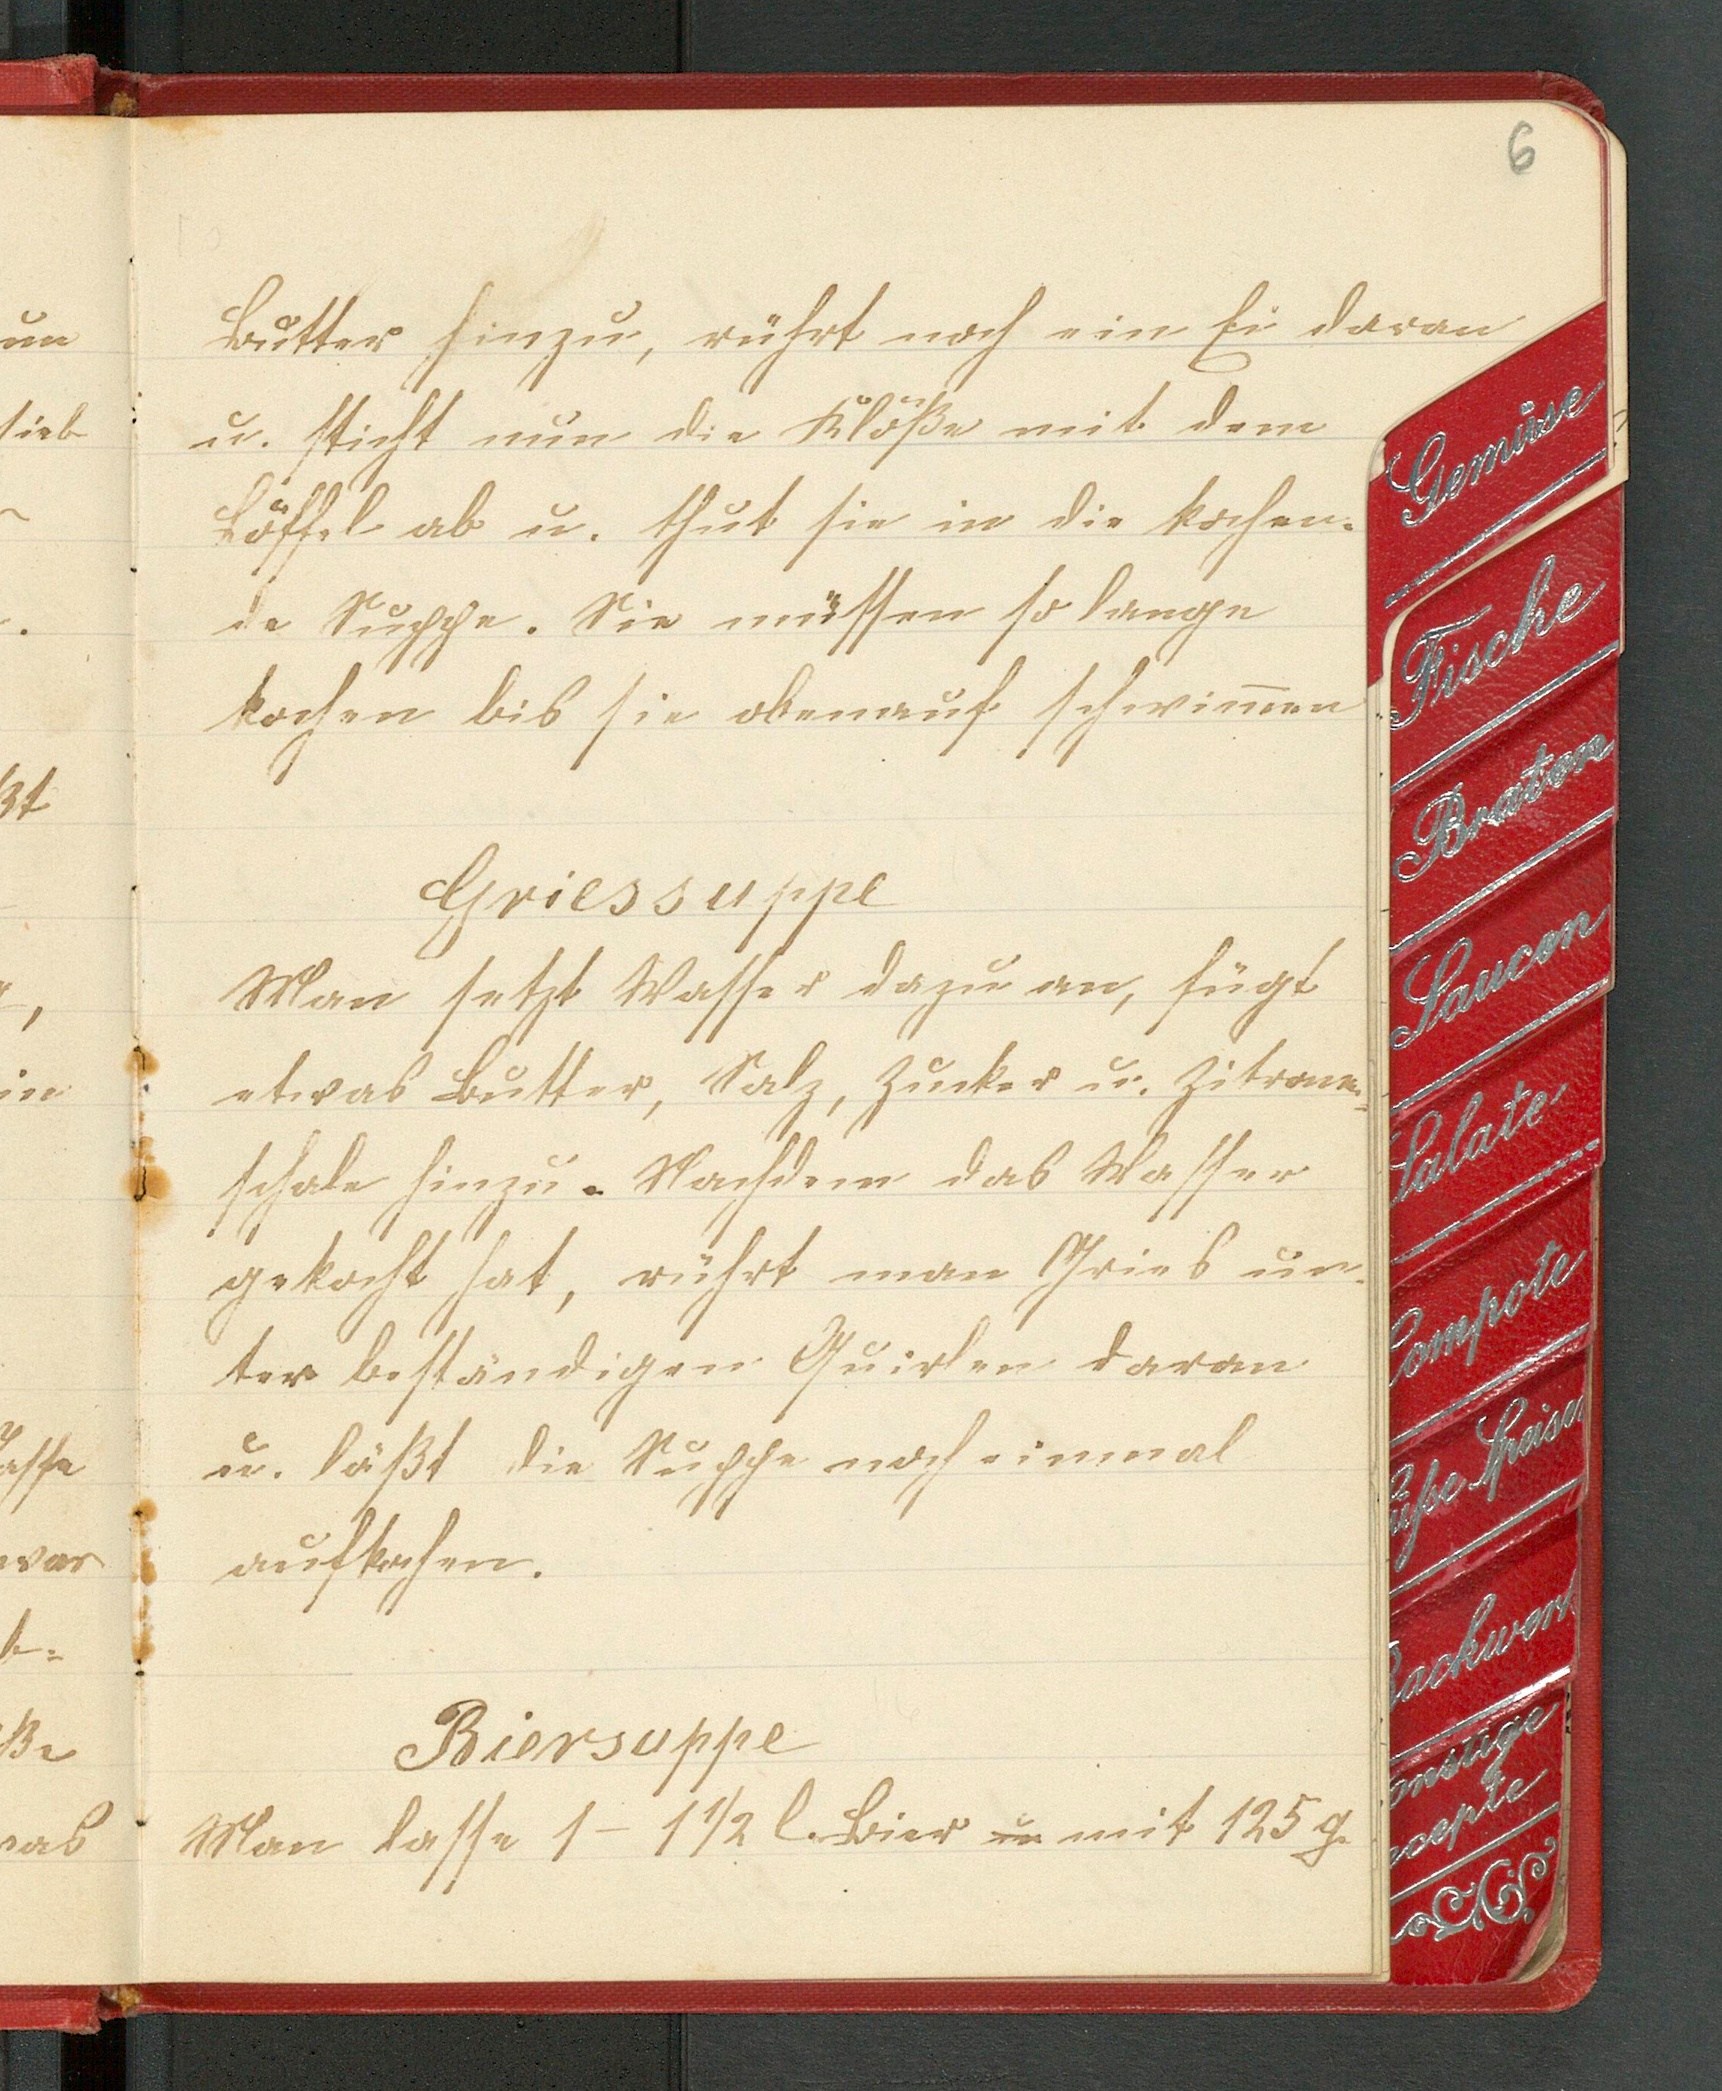 6
Butter hinzu, rührt noch ein Ei daran
u. sticht nun die Klöße mit dem
Löffel ab u. thut sie in die kochen-
de Suppe. Sie müssen so lange
kochen bis sie obenauf schwim̅en
Griessuppe
Man setzt Wasser dazu an, fügt
etwas Butter, Salz, Zucker u. Zitronen-
schale hinzu. Nachdem das Wasser
gekocht hat, rührt man Gries un-
ter beständigen Quirlen daran
u. läßt die Suppe noch einmal
aufkochen.
Biersuppe
Man lasse 1 – 1 1/2 l. Bier u mit 125 g.
un
sieb
ßt
in
Tasse
war
ße
was
Gemüse
Fische
Braten
Saucen
Salate
Compote
üße Speisen
Backwerk
onstige
ecepte